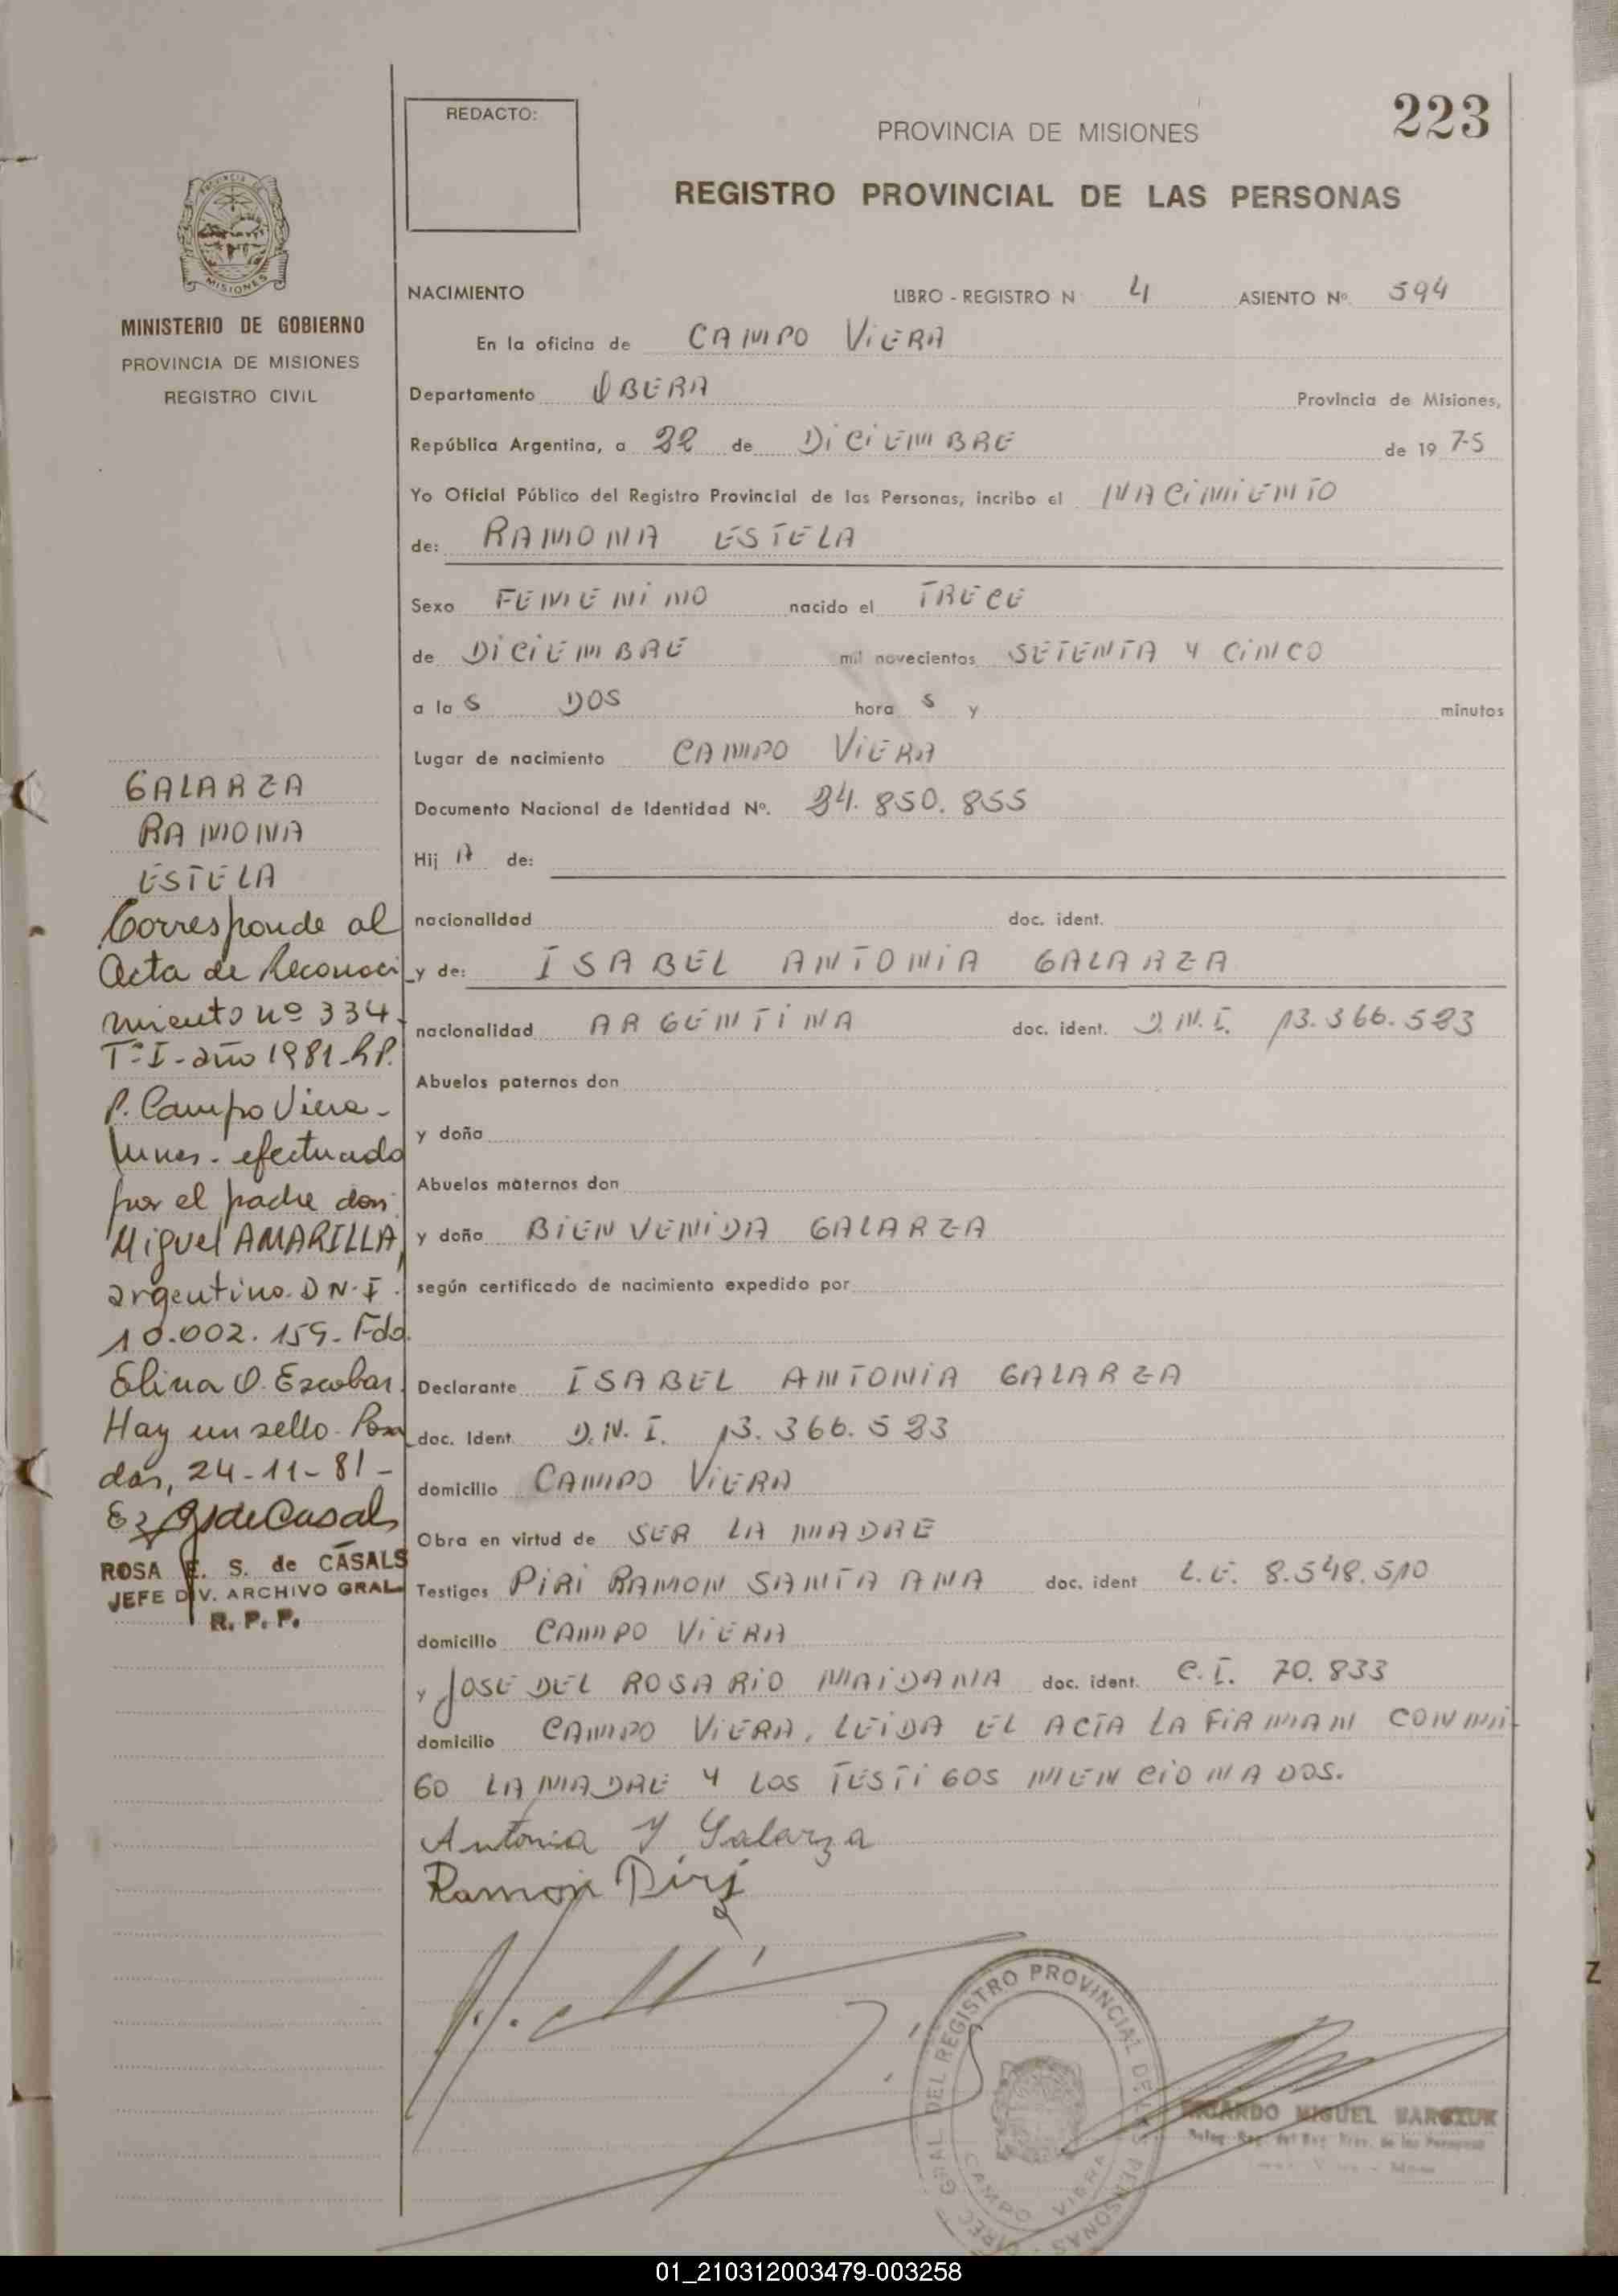 REDACTO:
PROVINCIA DE MISIONES
223
REGISTRO PROVINCIAL DE LAS PERSONAS
MISIONES
MINISTERIO DE GOBIERNO
PROVINCIA DE MISIONES
REGISTRO CIVIL
NACIMIENTO LIBRO - REGISTRO N 4 ASIENTO Nº 594
En la oficina de CAMPO VIERA
Departamento OBERA Provincia de Misiones,
República Argentina, a 22 de DICIEMBRE de 19 75
Yo Oficial Público del Registro Provincial de las Personas, incribo el NACIMIENTO
de: RAMONA ESTELA
Sexo FEMENINO nacido el TRECE
de DICIEMBRE mil novecientos SETENTA Y CINCO
a la S DOS hora S y minutos
Lugar de nacimiento CAMPO VIERA
Documento Nacional de Identidad Nº. 24.850.855
Hij A de:
nacionalidad doc. ident.
y de: ISABEL ANTONIA GALARZA
nacionalidad ARGENTINA doc. ident. D.N.I. 13.366.523
Abuelos paternos don
y doña
Abuelos maternos don
y doña BIENVENIDA GALARZA
según certificado de nacimiento expedido por
Declarante ISABEL ANTONIA GALARZA
doc. Ident. D.N.I. 13.366.523
domicilio CAMPO VIERA
Obra en virtud de SER LA MADRE
Testigos PIRI RAMON SANTA ANA doc. ident L.E. 8.548.510
domicilio CAMPO VIERA
y JOSE DEL ROSARIO MAIDANA doc. ident. C.I. 70.833
domicilio CAMPO VIERA, LEIDA EL ACTA LA FIRMAN CONMI-
GO LA MADRE Y LOS TESTIGOS MENCIONADOS.
Antonia Y Galarza
Ramon Piri
GALARZA
RAMONA
ESTELA
Corresponde al
Acta de Reconoci
miento nº 334-
Tº I-año 1981-R.P.
P. Campo Viera-
Mnes. efectuado
por el padre don:
Miguel AMARILLA,
argentino. D N.I.
10.002.159. Fdo.
Elina O. Escobar.
Hay un sello. Posa
das, 24-11-81-
ROSA E. S. de CASALS
JEFE DIV. ARCHIVO GRAL
R. P. P.
DIREC. GRAL DEL REGISTRO PROVINCIAL DE LAS PERSONAS
CAMPO VIERA
RICARDO MIGUEL
01_210312003479-003258